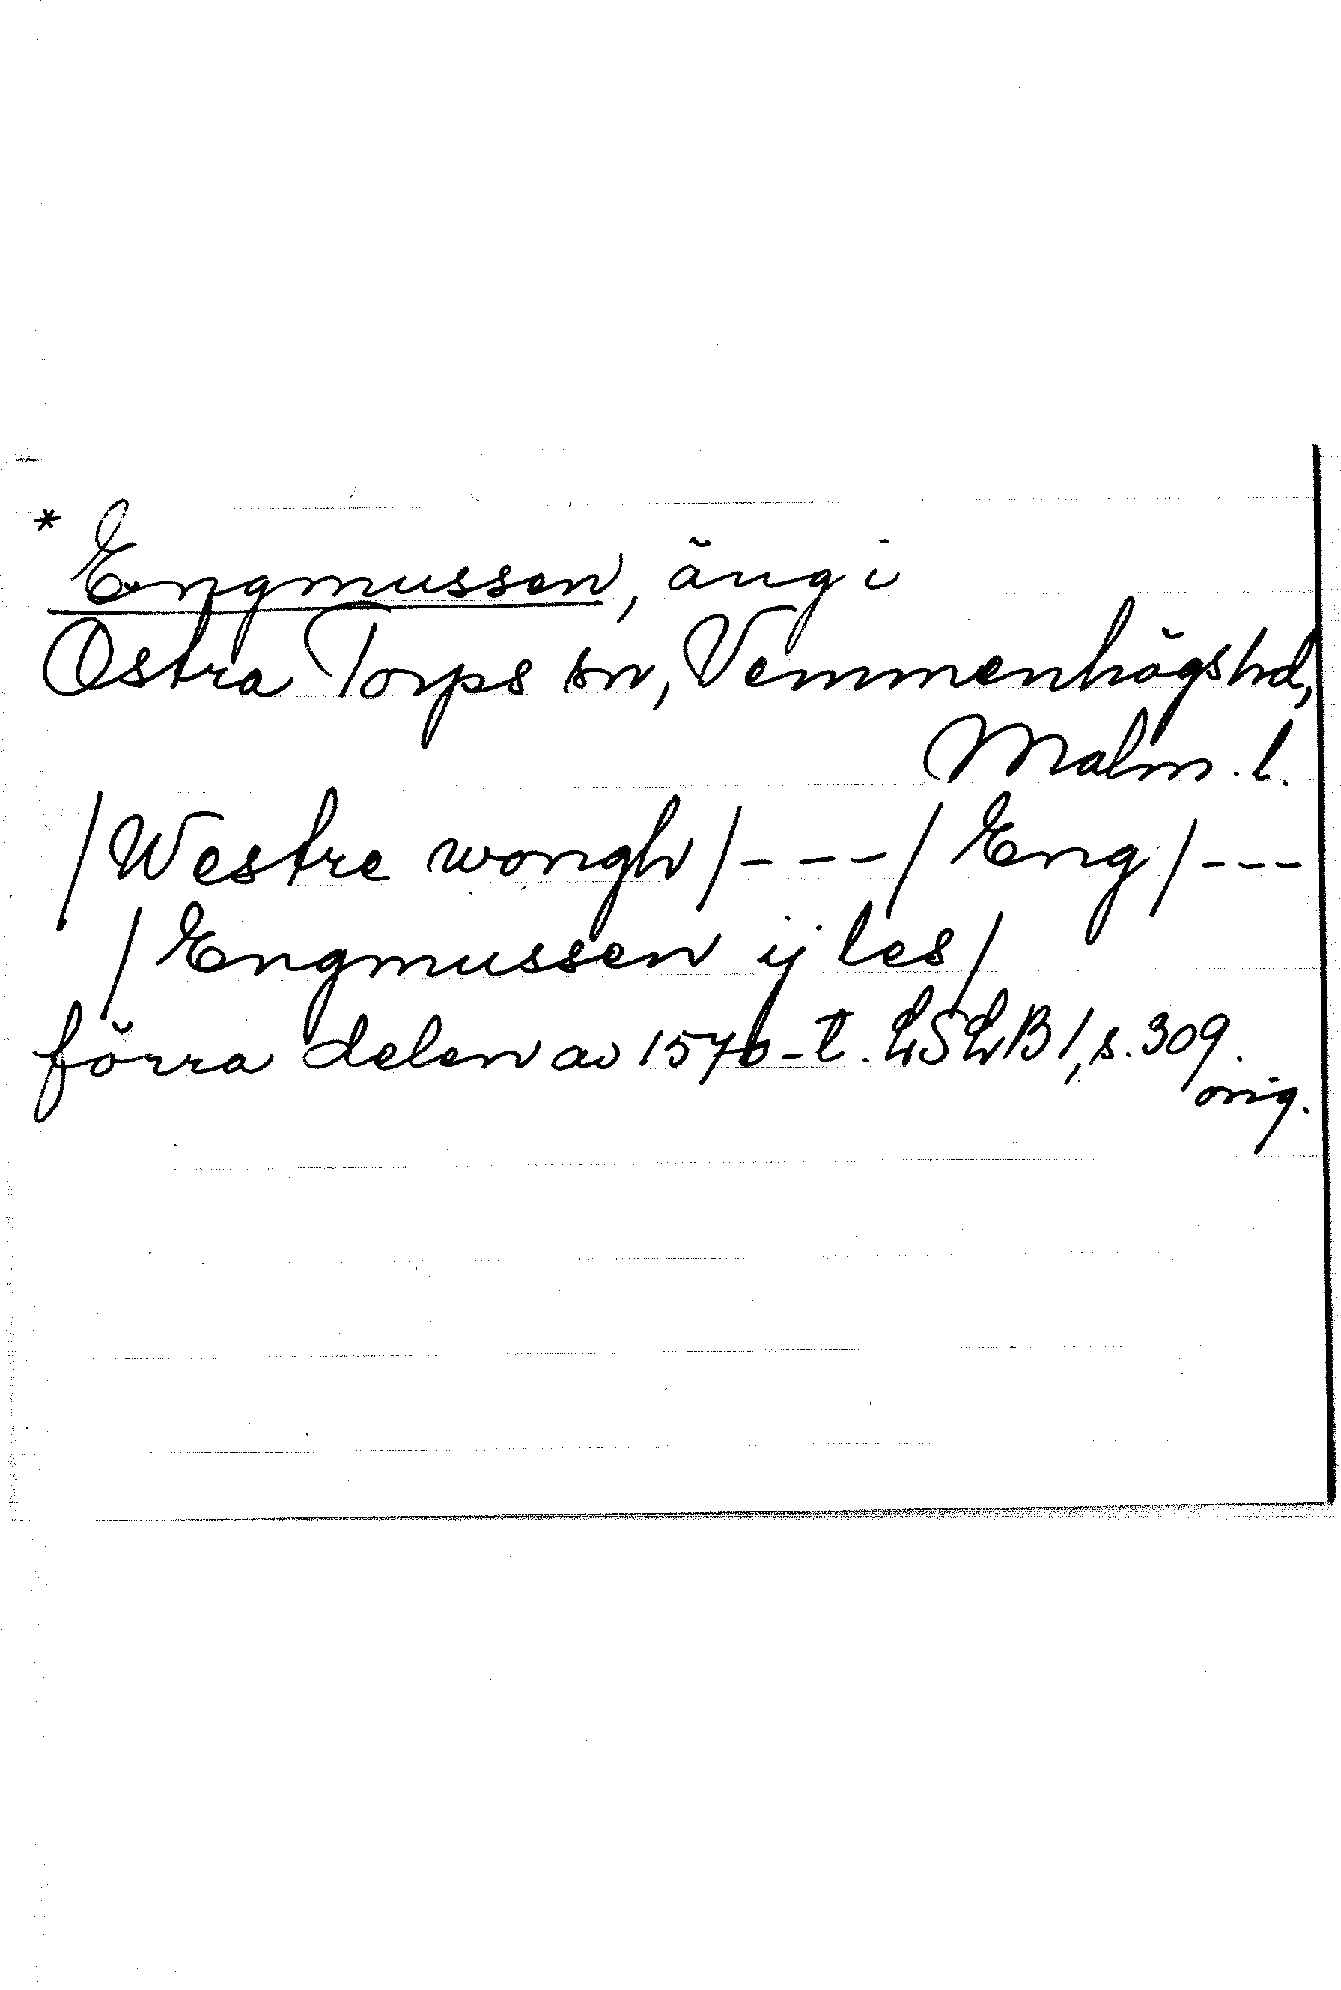 * Engmussen, äng i
Östra Torps sn, Vemmenhögs hd,
Malm. l.
/Westre wongh/---/Eng/---
/Engmussen ij les/
förra delen av 1570-t. LSLB 1, s. 309.
orig.